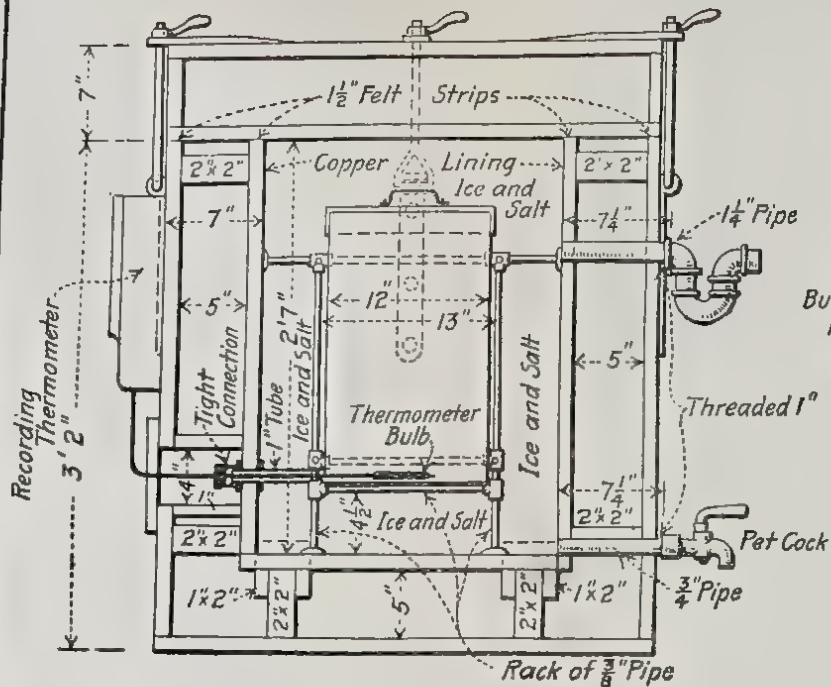 7"
1½" Felt Strips
2"x 2"
Copper Lining
2'x 2"
Ice and
Salt
7"
7¼"
1¼" Pipe
12"
13"
5"
5"
Recording
Thermometer
3' 2"
Tight
Connection
1" Tube
Ice and Salt
2' 7"
Ice and Salt
Thermometer
Bulb
Threaded 1"
4"
1"
4½"
Ice and Salt
7¼"
2"x 2"
2"x 2"
Pet Cock
1"x 2"
2"x 2"
5"
2"x 2"
1"x 2"
¾" Pipe
Rack of ⅜" Pipe
Bu